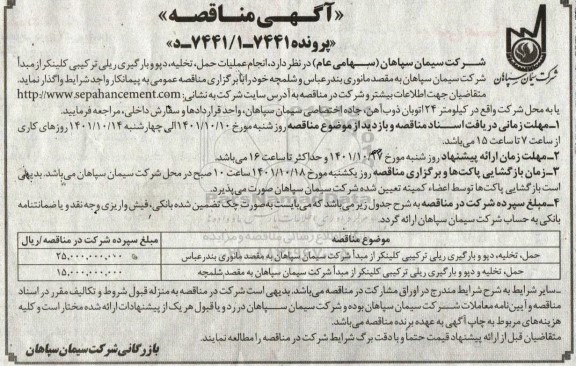 «آگهی مناقصه»
«پرونده ۷۴۴۱-۷۴۴۱/۱-د»
شرکت سیمان سپاهان
شرکت سیمان سپاهان (سهامی عام) در نظر دارد، انجام عملیات حمل، تخلیه، دپو و بارگیری ریلی ترکیبی کلینکر از مبدأ
شرکت سیمان سپاهان به مقصد مانوری بندرعباس و شلمچه خود را با برگزاری مناقصه عمومی به پیمانکار واجد شرایط واگذار نماید.
متقاضیان جهت اطلاعات بیشتر و شرکت در مناقصه به آدرس سایت شرکت به نشانی: http://www.sepahancement.com
یا به محل شرکت واقع در کیلومتر ۲۴ اتوبان ذوب‌آهن، جاده اختصاصی سیمان سپاهان، واحد قراردادها و سفارش داخلی، مراجعه فرمایید.
۱-مهلت زمانی دریافت اسناد مناقصه و بازدید از موضوع مناقصه روز شنبه مورخ ۱۴۰۱/۱۰/۱۰ الی چهارشنبه ۱۴۰۱/۱۰/۱۴ روزهای کاری
از ساعت ۷ تا ساعت ۱۵ می‌باشد.
۲-مهلت زمان ارائه پیشنهاد روز شنبه مورخ ۱۴۰۱/۱۰/ و حداکثر تا ساعت ۱۶ می‌باشد.
۳-زمان بازگشایی پاکت‌ها و برگزاری مناقصه روز یکشنبه مورخ ۱۴۰۱/۱۰/۱۸ ساعت ۱۰ صبح در محل شرکت سیمان سپاهان می‌باشد. بدیهی
است بازگشایی پاکت‌ها توسط اعضاء کمیته تعیین شده شرکت سیمان سپاهان صورت می‌پذیرد.
۴-مبلغ سپرده شرکت در مناقصه به شرح جدول زیر می‌باشد که می‌بایست به صورت چک تضمین شده بانکی، فیش واریزی وجه نقد و یا ضمانتنامه
بانکی به حساب شرکت سیمان سپاهان ارائه گردد.
موضوع مناقصه مبلغ سپرده شرکت در مناقصه/ریال
حمل، تخلیه، دپو و بارگیری ریلی ترکیبی کلینکر از مبدأ شرکت سیمان سپاهان به مقصد مانوری بندرعباس ۲۵,۰۰۰,۰۰۰,۰۰۰
حمل، تخلیه و دپو و بارگیری ریلی ترکیبی کلینکر از مبدأ شرکت سیمان سپاهان به مقصد شلمچه ۱۵,۰۰۰,۰۰۰,۰۰۰
-سایر شرایط به شرح شرایط مندرج در اوراق مشارکت در مناقصه می‌باشد. بدیهی است شرکت در مناقصه به منزله قبول شروط و تکالیف مقرر در اسناد
مناقصه و آیین‌نامه معاملات شرکت سیمان سپاهان بوده و شرکت سیمان سپاهان در رد و یا قبول هر یک از پیشنهادات ارائه شده مختار است و کلیه
هزینه‌های مربوط به چاپ آگهی به عهده برنده مناقصه می‌باشد.
متقاضیان قبل از ارائه پیشنهاد قیمت حتماً و با دقت برگ شرایط شرکت در مناقصه را مطالعه نمایند.
بازرگانی شرکت سیمان سپاهان